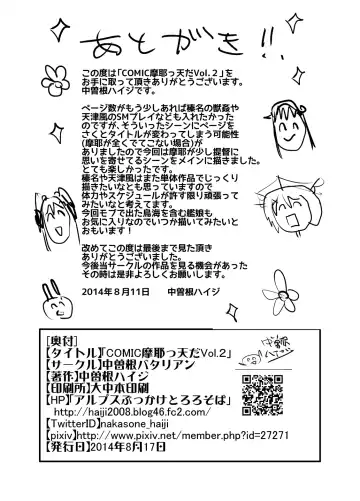 あとがき!!
この度は「COMIC摩耶っ天だVol.2」を
お手に取って頂きありがとうございます。
中曽根ハイジです。
ページ数がもう少しあれば榛名の獣姦や
天津風のSMプレイなども入れたかった
のですが、そういったシーンにページを
さくとタイトルが変わってしまう可能性
(摩耶が全くでてこない場合)が
ありましたので今回は摩耶が少し提督に
思いを寄せてるシーンをメインに描きました。
とても楽しかったです。
榛名や天津風はまた単体作品でじっくり
描きたいなとも思っていますので
体力やスケジュールが許す限り頑張って
みたいなと考えてます。
今回モブで出た鳥海を含む艦娘も
お気に入りなのでいつか描いてみたいと
おもいます!
改めてこの度は最後まで見た頂き
ありがとうございました。
今後当サークルの作品を見る機会があった
その時は是非よろしくお願いします。
2014年8月11日 中曽根ハイジ
中曽根
ハイジ
[奥付]
【タイトル】「COMIC摩耶っ天だVol.2」
【サークル】中曽根バタリアン
【著作】中曽根ハイジ
【印刷所】大中本印刷
【HP】「アルプスぶっかけとろろそば」
http://haiji2008.blog46.fc2.com/
【TwitterID】nakasone_haiji
【pixiv】http://www.pixiv.net/member.php?id=27271
【発行日】2014年8月17日